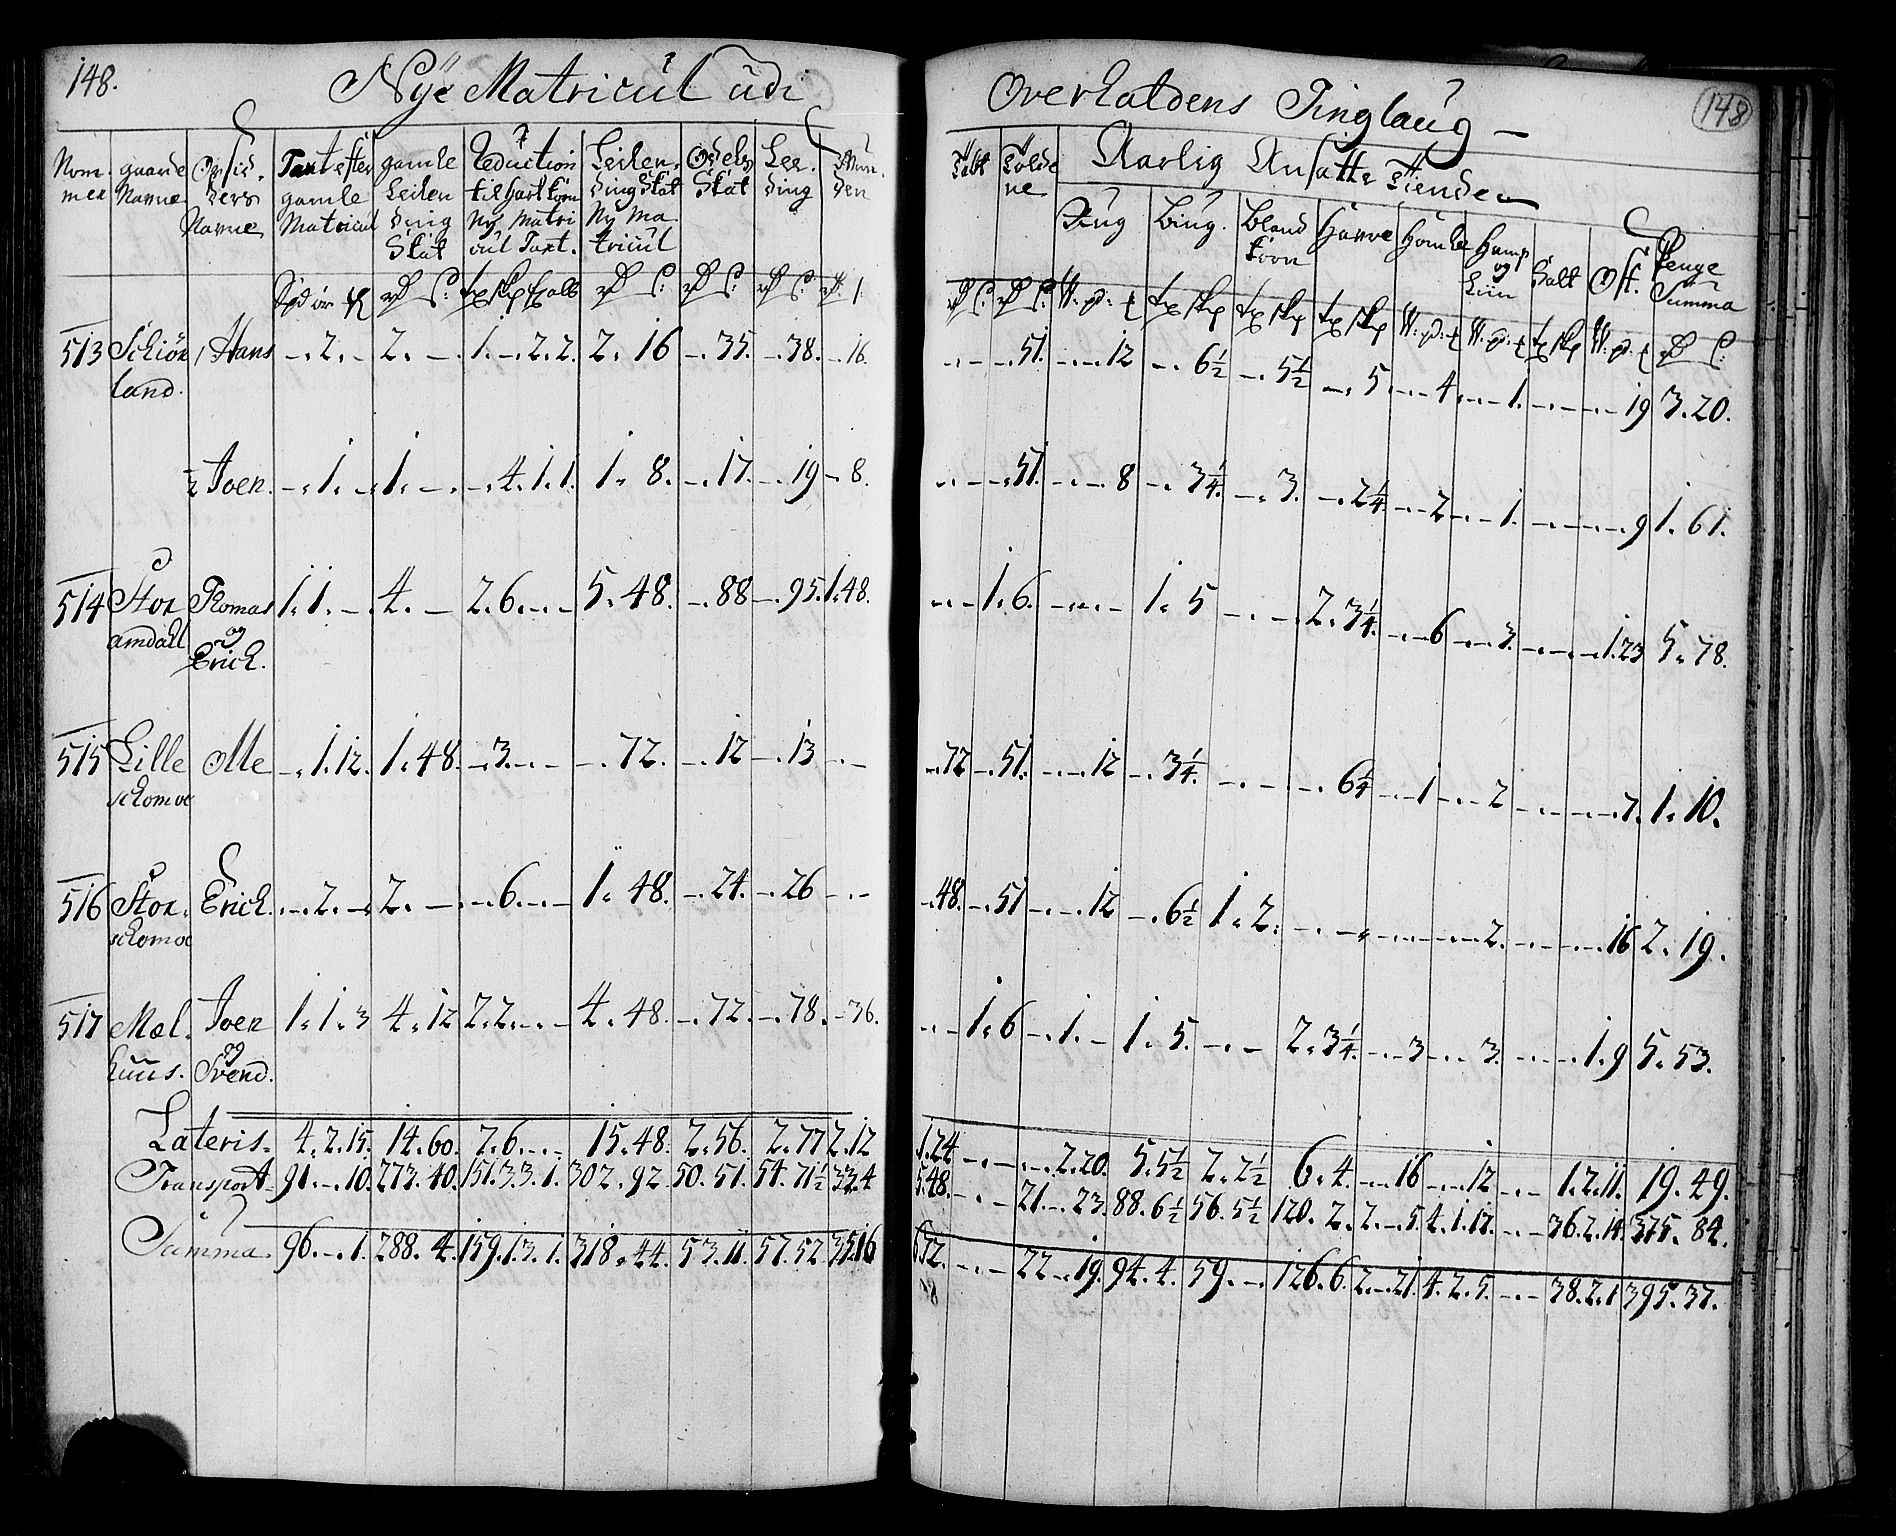 148. Nÿe Matricul udi
Overhaldens Tinglaug –
148
Nom- gaarde Opsid- Taxt efter gamle Reduction Leilen- Odels Lee- Mün-
mer Navne ders gamle Leilen til hartkorn ding Skat Skat ding den
Navne Matricul ding Nÿ Matri Nÿ Ma-
Skat cul Taxt. tricul
513 Schiön 1 Hans –. 2. – 2. –. 1. –. 2. 2. 2. 16 –. 35. –. 38. –. 16.
land.
½ Joen. –. 1. – 1. –. –. 4. 1. 1. 1. 8. –. 17. –. 19 –. 8.
514 Stor Thomas 1. 1. –. 4. – 2. 6. –. – 5. 48. –. 88 –. 95. 1. 48.
amdall og
Erich.
515 Lille Olle –. 1. 12. 1. 48. –. 3. –. – –. 72. –. 12 –. 13 –. –
schomoe
516 Stor. Erich. –. 2. – 2. – –. 6. –. – 1. 48. –. 24. –. 26 –. –
schomoe
517 Mæl- Joen 1. 1. 3 4. 12 2. 2. –. – 4. 48. –. 72. –. 78. –. 36.
huus. og
Svend.
Lateris. 4. 2. 15. 14. 60. 7. 6. –. – 15. 48. 2. 56. 2. 77 2. 12
Transport. 91. –. 10. 273. 40. 151. 3. 3. 1. 302. 92. 50. 51. 54. 71½ 33. 4
Summa. 96. –. 1. 288. 4. 159. 1. 3. 1. 318. 44. 53. 11. 57. 52 35. 16
Told Aarlig Ansatte Tiende
ne
Rug Biug. Bland Havre Homle Hamp Salt Ost. Penge
korn og Summa
Liin
–. – –. 51. –. –. 12 –. 6½ –. 5½ –. 5 –. –. 4 –. –. 1. –. – –. –. 19 3. 20.
–. – –. 51. –. –. 8 –. 3¼. –. 3. –. 2¼ –. –. 2 –. –. 1. –. – –. –. 9 1. 61.
–. – 1. 6. –. –. – 1. 5 –. – 2. 3¼. –. –. 6 –. –. 3. –. – –. 1. 23 5. 78.
–. 72 –. 51. –. –. 12 –. 3¼. –. – –. 6¼ –. –. 1 –. –. 2 –. – –. –. 7. 1. 10.
–. 48. –. 51 –. –. 12 –. 6½ 1. 2. –. – –. –. – –. –. 2. –. – –. –. 16 2. 19.
–. – 1. 6 –. 1. – 1. 5. –. – 2. 3¼. –. –. 3 –. –. 3. –. – –. 1. 9 5. 53.
1. 24 –. – –. 2. 20. 5. 5½ 2. 2½ 6. 4. –. –. 16 –. –. 12 –. – 1. 2. 11. 19. 49.
5. 48. –. – 21. –. 23. 88. 6½ 56. 5½ 120. 2. 2. –. 5. 4. 1. 17. –. – 36. 2. 14. 375. 84.
6. 72. –. – 22 –. 19. 94. 4. 59. –. 126. 6. 2. –. 21. 4. 2. 5. –. – 38. 2. 1 395. 37.